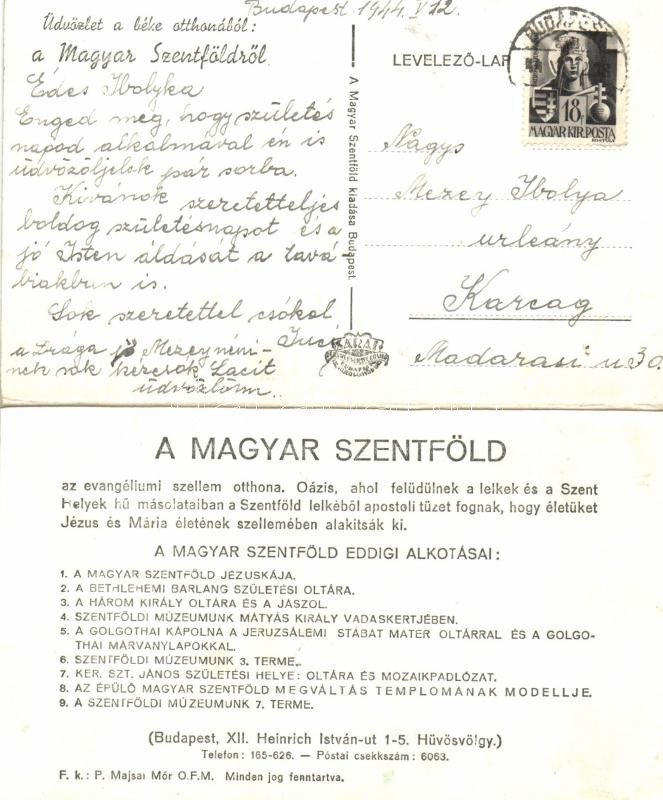 Budapest 1944. V 12.
Üdvözlet a béke otthonából:
a Magyar Szentföldről.
Edes Ibolyka
Enged meg, hogy születés
napod alkalmával én is
üdvözöljelek pár sorba.
Kivánok szeretetteljes
boldog születésnapot és a
jó Isten áldását a tová-
biakban is.
Sok szeretettel csókol
Juci
a Drága jó Mezeynéni-
nek sok kezcsók Lacit
üdvözlöm.
A Magyar Szentföld kiadása Budapest.
LEVELEZŐ-LAP
BUDAPEST
18
MAGYAR KIR. POSTA
Nagys
Mezey Ibolya
urleány
Karcag
Madarasi u 30.
BARÁT
A MAGYAR SZENTFÖLD
az evangéliumi szellem otthona. Oázis, ahol felüdülnek a lelkek és a Szent
Helyek hű másolataiban a Szentföld lelkéből apostoli tüzet fognak, hogy életüket
Jézus és Mária életének szellemében alakitsák ki.
A MAGYAR SZENTFÖLD EDDIGI ALKOTÁSAI:
1. A MAGYAR SZENTFÖLD JÉZUSKÁJA.
2. A BETHLEHEMI BARLANG SZÜLETÉSI OLTÁRA.
3. A HÁROM KIRÁLY OLTÁRA ÉS A JÁSZOL.
4. SZENTFÖLDI MÚZEUMUNK MÁTYÁS KIRÁLY VADASKERTJÉBEN.
5. A GOLGOTHAI KÁPOLNA A JERUZSÁLEMI STABAT MATER OLTÁRRAL ÉS A GOLGO-
THAI MÁRVÁNYLAPOKKAL.
6. SZENTFÖLDI MÚZEUMUNK 3. TERME.
7. KER. SZT. JÁNOS SZÜLETÉSI HELYE: OLTÁRA ÉS MOZAIKPADLÓZAT.
8. AZ ÉPÜLŐ MAGYAR SZENTFÖLD MEGVÁLTÁS TEMPLOMÁNAK MODELLJE.
9. A SZENTFÖLDI MÚZEUMUNK 7. TERME.
(Budapest, XII. Heinrich István-ut 1-5. Hüvösvölgy.)
Telefon: 165-626. — Póstai csekkszám: 6063.
F. k.: P. Majsai Mór O.F.M. Minden jog fenntartva.